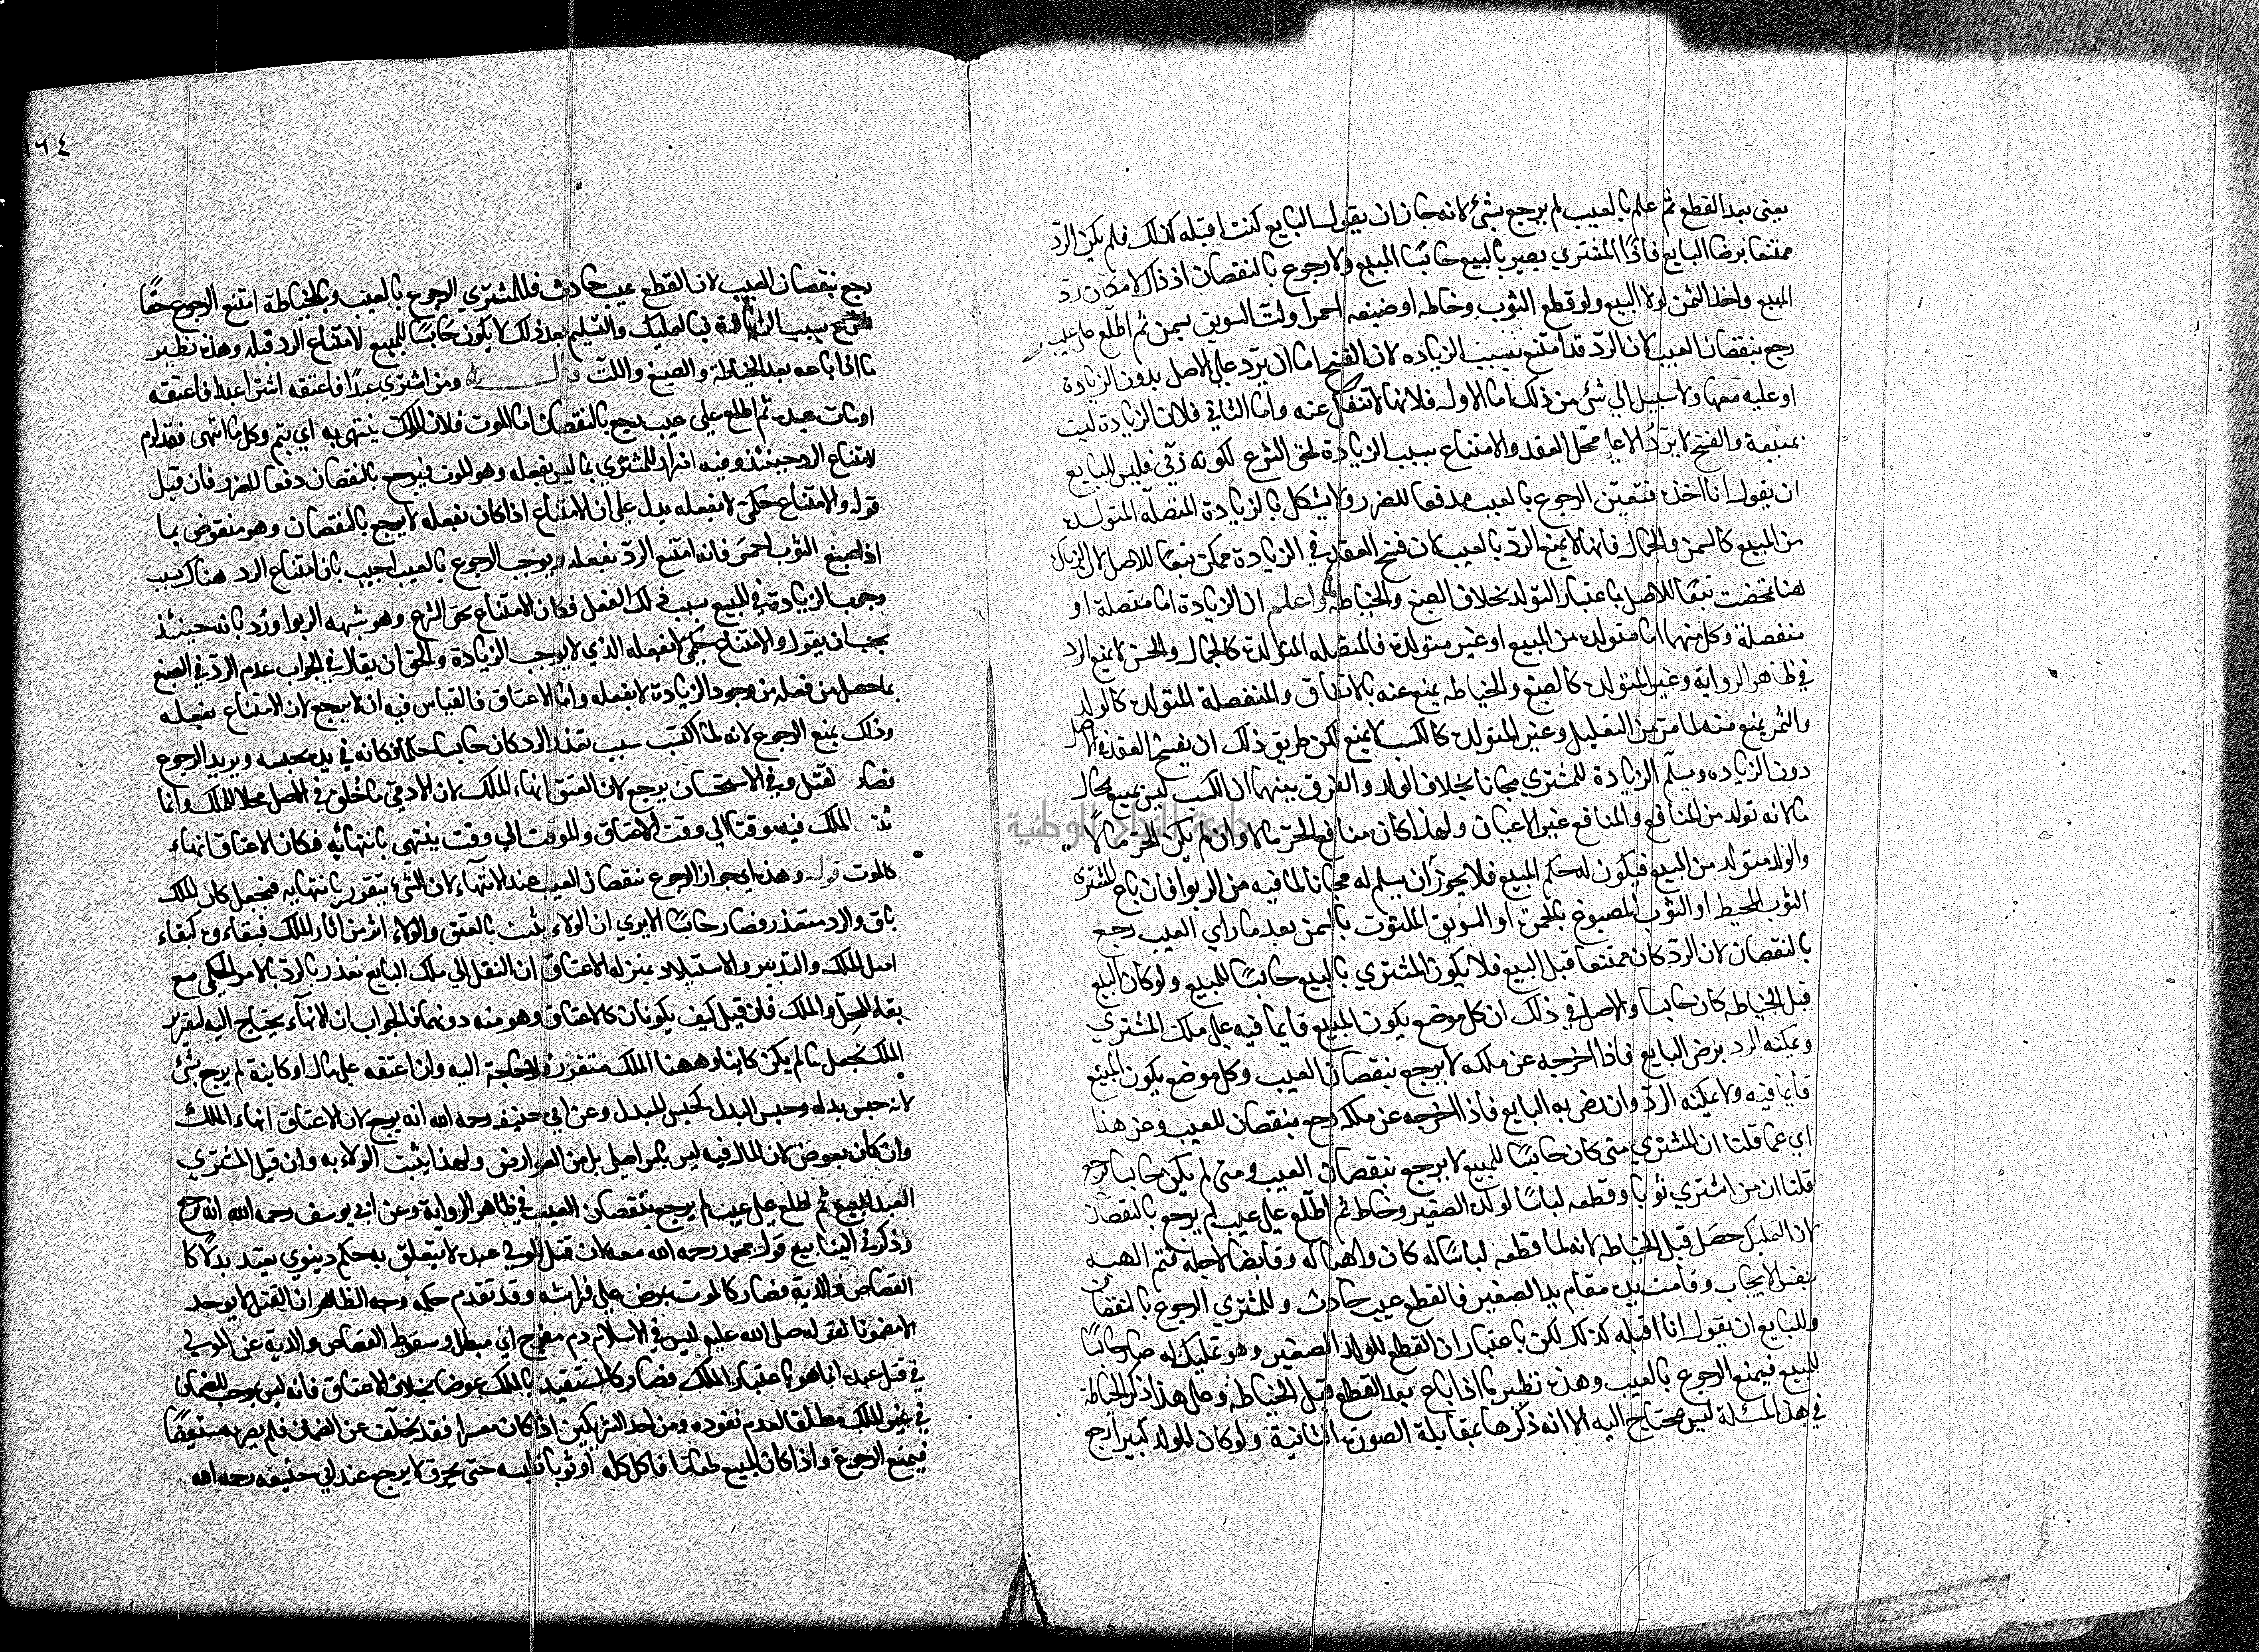 يعني بعد القطع ثم علم بالعيب لم يرجع بشئ لانه جاز ان يقول البايع كنت اقبله كذلك فلم يكن الردّ
ممتنعا برضا البايع فاذًا المشتري يصير بالبيع حابسًا المبيع ولا رجوع بالنقصان اذ ذاك لامكان ردّ
المبيع واخذ الثمن لولا البيع ولو قطع الثوب وخاطه او صبغه احمر او لتّ السويق بسمن ثم اطلع على عيب
رجع بنقصان العيب لان الردّ قد امتنع بسبب الزياده لان الفسخ اما ان يرّد على الاصل بدون الزيادة
او عليه معها ولا سبيل الي شئ من ذلك اما الاول فلانها لا تنفك عنه واما الثاني فلان الزيادة ليست
بمبيعة والفسخ لا يردُ الا علي محل العقد والامتناع بسبب الزيادة لحق الشرع لكونه فليس للبايع
ان يقول انا اخذه فتعين الرجوع بالعيب دفعا للضرر ولا يشكل بالزيادة المتصلة المتولدة
من المبيع كالسمن والجمال فانها لا يمنع الردّ بالعيب لان فسخ العقد في الزيادة ممكن تبعًا للاصل لان الزيادة
هنا تمحضت تبعًا للاصل باعتبار التولد بخلاف الصبغ والخياطه واعلم ان الزيادة اما متصلة او
منفصلة وكل منهما اما متولدة من المبيع او غير متولدة فالمتصله المتولدة كالجمال والحسن لا يمنع الرد
في ظاهر الرواية وغير المتولدة كالصبغ والخياطه يمنع عنه بالاتفاق والمنفصلة المتولدة كالولد
والثمر يمنع منه لما مر من التعليل وغير المتولدة كالكسب لا يمنع لكن طريق ذلك ان يفسخ العقد في الاصل
دون الزياده ويسلّم الزيادة للمشتري مجانا بخلاف الولد والفرق بينهما ان الكسب ليس بمبيع بحال
ما لانه تولد من المنافع والمنافع غير الاعيان ولهذا كان منافع الحرّ مالا وان لم يكن الحرّ مالًا
والولد متولد من المبيع فيكون له حكم المبيع فلا يجوز ان يسلم له مجانا لما فيه من الربوا فان باع المشترى
الثوب المخيط او الثوب المصبوغ بالحمرة او السويق الملتوت بالسمن بعد ما راي العيب رجع
بالنقصان لان الردّ كان ممتنعا قبل البيع فلا يكون المشتري بالبيع حابسًا للمبيع ولو كان البيع
قبل الخياطه كان حابسا والاصل في ذلك ان كل موضع يكون المبيع قايما فيه علي ملك المشتري
ويمكنه الرد برضي البايع فاذا اخرجه عن ملكه لا يرجع بنقصان العيب وكل موضع يكون المبيع
قايما فيه ولا يمكنه الردّ وان رضي به البايع فاذا اخرجه عن ملكه رجع بنقصان العيب وعن هذا
اي عما قلنا ان المشتري متى كان حابسًا للمبيع لا يرجع بنقصان العيب ومتى لم يكن حابسا يرجع
قلنا ان من اشتري ثوبا وقطعه لباسًا لولده الصغير وخاط ثم اطّلع على عيب لم يرجع بالنقصان
لان التمليك حصَل قبل الخياطه لانه لما قطعه لباسًا له كان واهبا له وقابضا لاجله فتم الهبه
بنفس الايجاب وقامت يده مقام يد الصغير فالقطع عيب حادث وللمشتري الرجوع بالنقصان
وللبايع ان يقول انا اقبله كذلك لكن باعتبار ان القطع للولد الصغير وهو تمليك له صار حابسًا
للمبيع فيمنع الرجوع بالعيب وهذه نظير ما اذا باع بعد القطع قبل الخياطة وعلى هذا ذكر الخياطة
في هذه المسئلة ليس محتاج اليه الا انه ذكرها بمقابلة الصورة الثانية ولو كان الولد كبيرا رجع
١٦٤
رجع بنقصان العيب لان القطع عيب حادث فللمشتري الرجوع بالعيب وبالخياطة امتنع الرجوع حقًا
للشرع بسبب الزيادة فبالتمليك والتسليم بعد ذلك لا يكون حابسًا للمبيع لامتناع الرد قبله وهذه نظير
ما اذا باعه بعد الخياطة والصبغ واللتّ ومن اشتري عبدًا فاعتقه اشترا عبدا فاعتقه
او مات عنده ثم اطلع علي عيب رجع بالنقصان اما الموت فلان الملك ينتهي به اي يتم وكل ما انتهى فقد لزم
لامتناع الرد حينئذ وفيه اضرار للمشتري بما ليس بفعله وهو الموت فيرجع بالنقصان دفعا للضرر فان قيل
قوله والامتناع حكميّ لا بفعله يدل علي ان الامتناع اذا كان بفعله لا يرجع بالنقصان وهو منقوض بما
اذا صبغ الثوب احمر فانه امتنع الردّ بفعله ويوجب الرجوع بالعيب اجيب بان امتناع الرد هناك بسبب
وجوب الزيادة في المبيع بسبب ذلك الفعل فكان الامتناع لحق الشرع وهو شبهه الربوا ورُد بانه حينئذ
يجب ان يقول والامتناع حكمي لا بفعله الذي لا يوجب الزيادة والحق ان يقال في الجواب عدم الردّ في الصبغ
بما حصل من فعله من وجود الزيادة لا بفعله واما الاعتاق فالقياس فيه ان لا يرجع لان الامتناع بفعله
وذلك يمنع الرجوع لانه لما اكتسب سبب تعذر الرد كان حابسا حكمًا فكانه في يده يحبسه ويريد الرجوع
فصار لقتل وفي الاستحسان يرجع لان العتق انهاء للملك لان الادميّ ما خُلق في الاصل محلا للملك وانما
الملك فيه موقتا الي وقت الاعتاق والموقت الي وقت ينتهي بانتهائه فكان الاعتاق انهاء
كالموت قوله وهذا اي جواز الرجوع بنقصان العيب عند الانتهآء لان الشئ يتقرر بانتهايه فيجعل كان الملك
باق والرد متعذر فصار حابسًا الا يري ان الولاء يثبت بالعتق والولاء اثر من اثار الملك فبقاؤه كبقاء
اصل الملك والتدبير والاستيلاد بمنزله الاعتاق ان النقل الي ملك البايع تعذر بالردّ بالامر الحكمي مع
بقاء المحل والملك فان قيل كيف يكونان كالاعتاق وهو منه دونهما فالجواب ان الانهآء يحتاج اليه لتقرير
الملك يجعل ما لم يكن كاينا وههنا الملك متقرر فلا حاجة اليه وان اعتقه علي مال او كاتبه لم يرجع بشئ
لانه حبس بدله وحبس البدل كحبس المبدل وعن ابي حنيفه رحمه الله انه يرجع لان الاعتاق انهاء الملك
وان كان بعوض لان المال فيه ليس بامر اصيل بل من العوارض ولهذا يثبت الولاء به وان قتل المشتري
العبد المبيع ثم اطلع على عيب لم يرجع بنقصان العيب في ظاهر الرواية وعن ابي يوسف رحمه الله انه يرجع
وذكر في الينابيع قول محمد رحمه الله معه لان قتل المولي عبده لا يتعلق به حكم دنيوي يعتد بدلا كا
القصاص والدية فصار كالموت بمرض علي فراشه وقد تقدم حكمه وجه الظاهر ان القتل لا يوجد
الا مضمونا لقوله صلى الله عليه ليس في الاسلام دم مفرج اي مبطل وسقوط القصاص والدية عن المولي
في قتل عبده انما هو باعتبار الملك فصار كالمستفيد بالملك عوضا بخلاف الاعتاق فانه ليس بموجب للضمان
في غير الملك مطلقا لعدم نفوده ومن احد الشريكين اذا كان معسرا فقد يتخلف عن الضمان فلم يصر به مستعيضًا
فيمتنع الرجوع واذا كان المبيع طعامًا فاكل كله او ثوبا فلبسه حتى يخرق لا يرجع عند ابي حنيفه رحمه الله